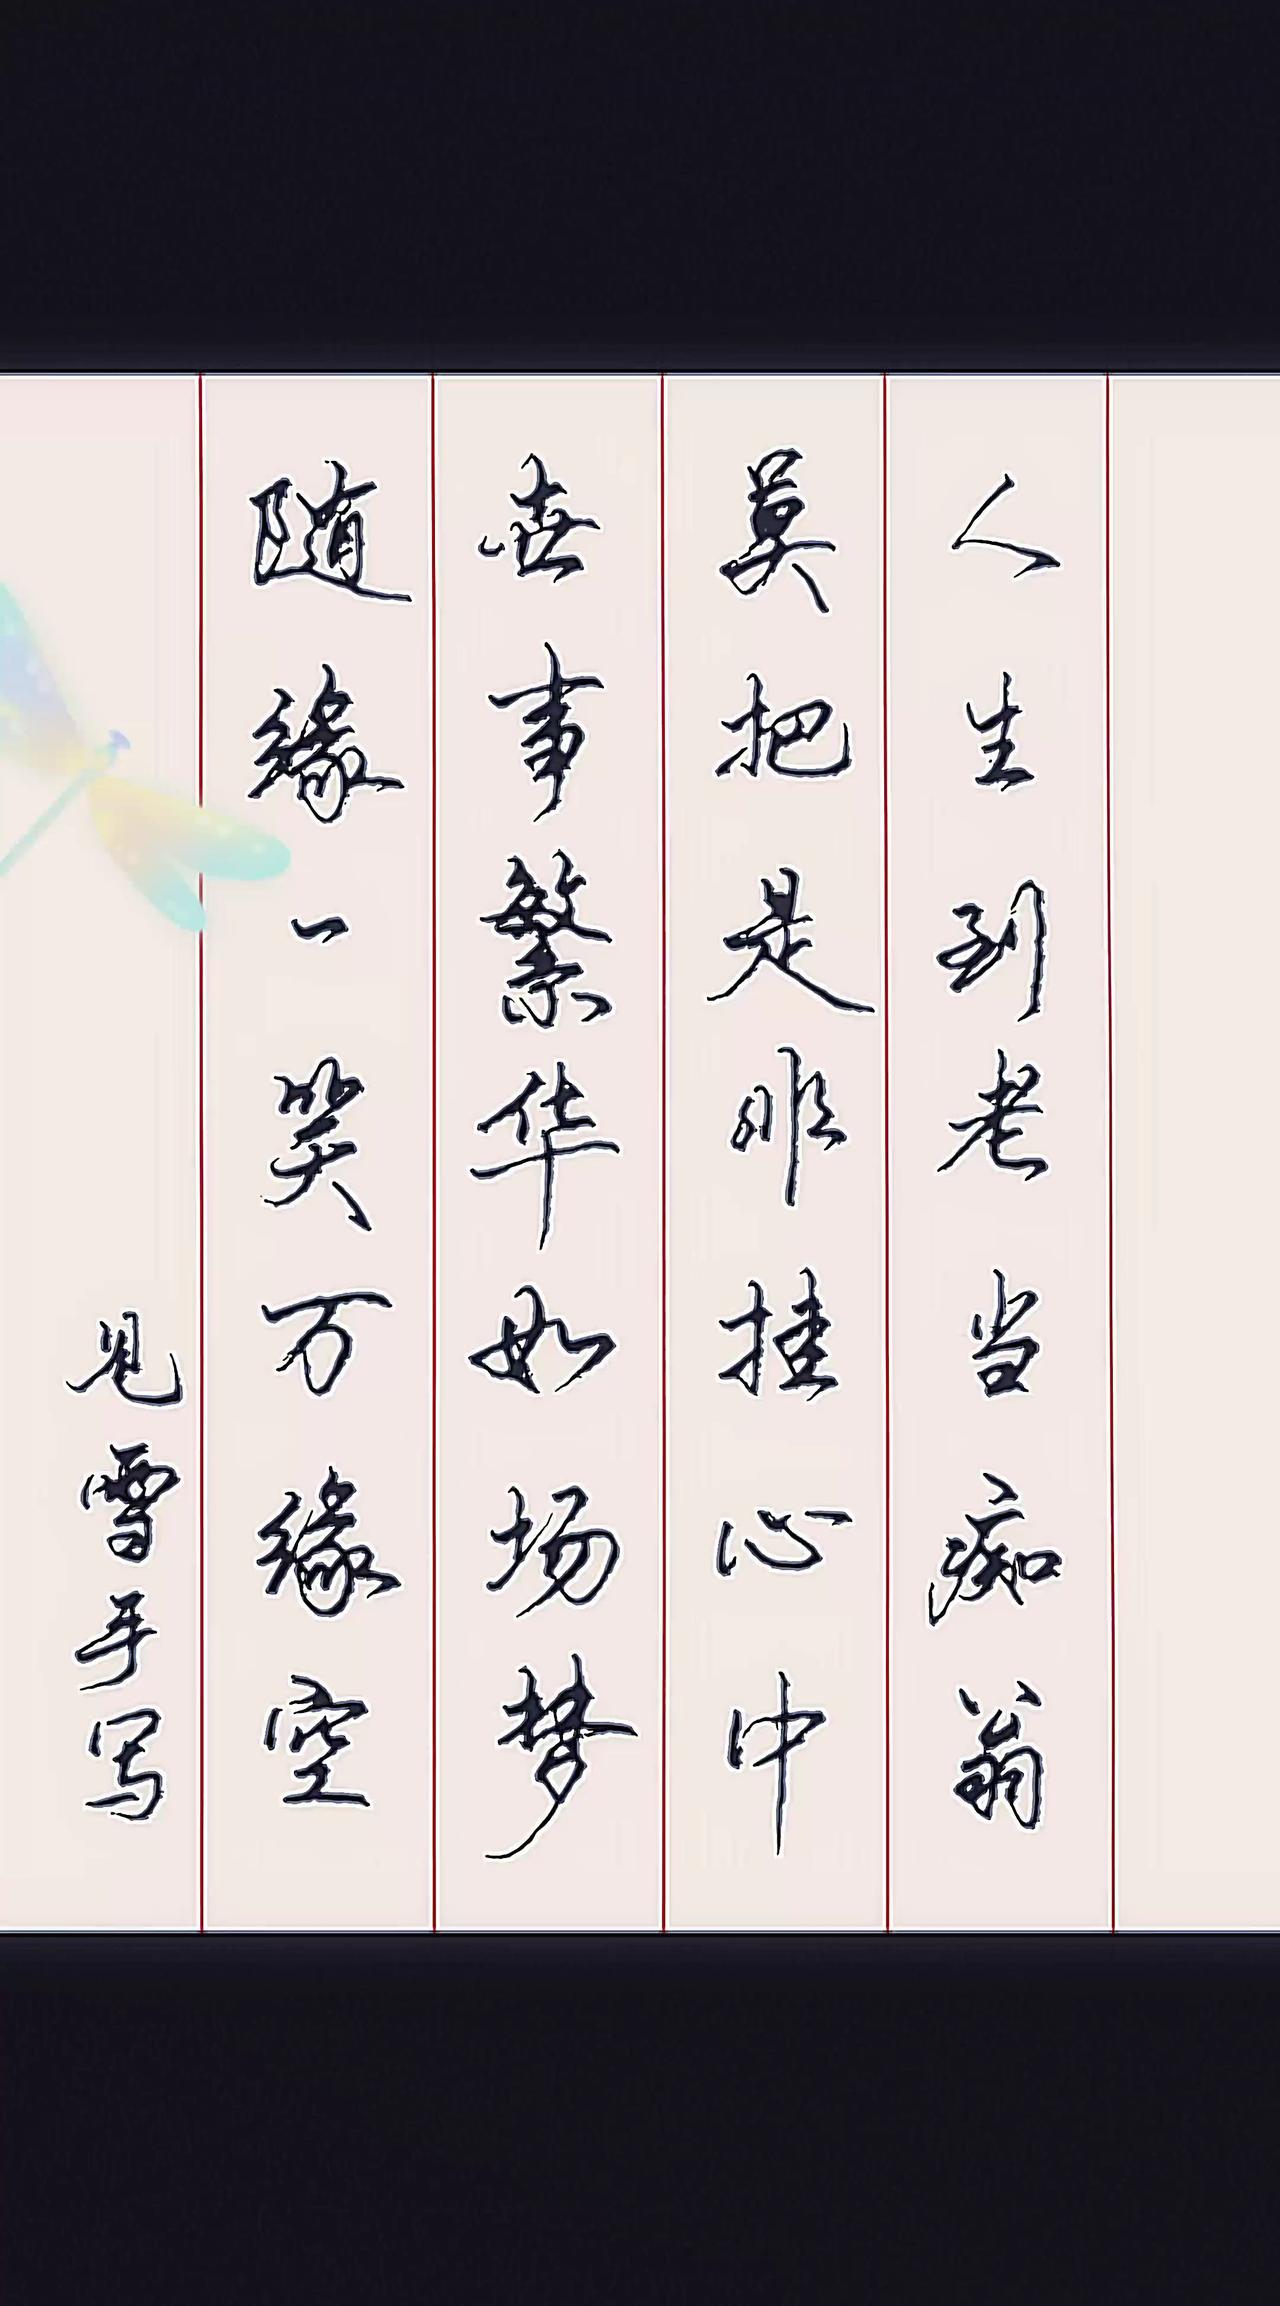 人生到老当痴翁
莫把是非挂心中
世事繁华如场梦
随缘一笑万缘空
见雪手写